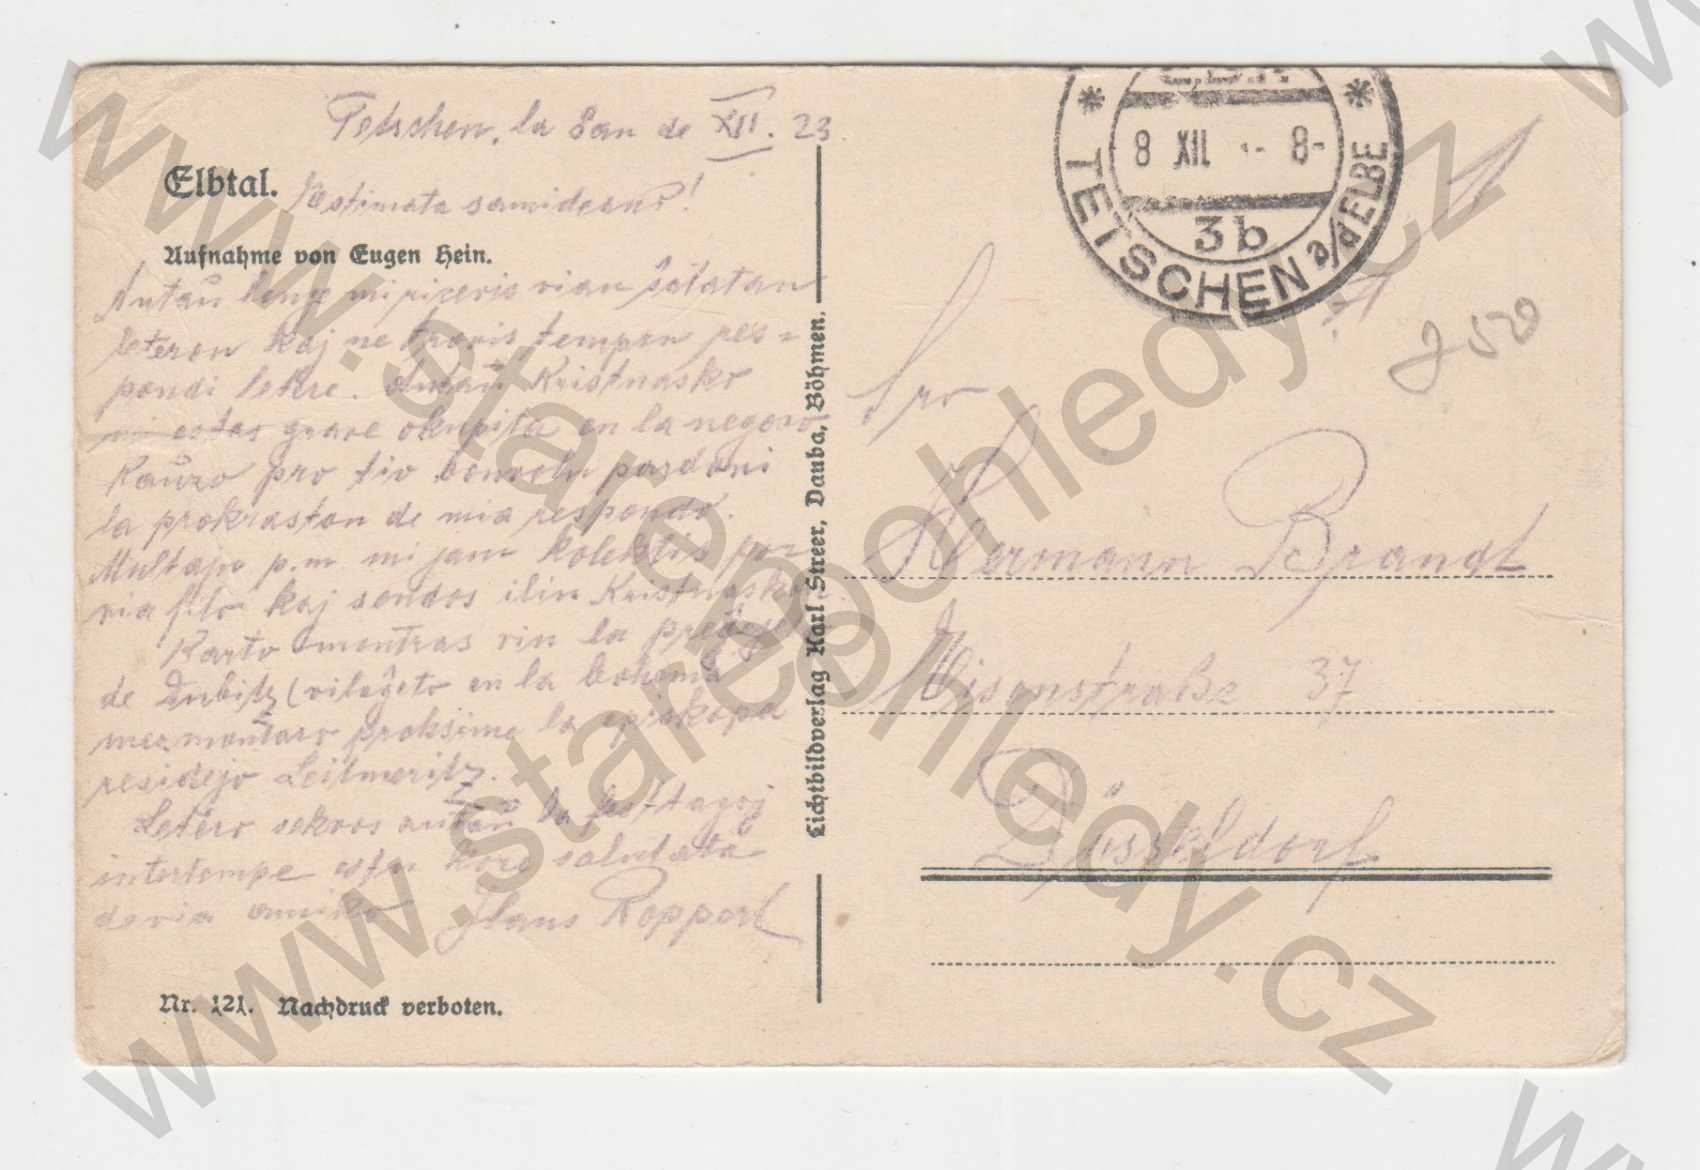 Tetschen, la 8an de XII. 23.
Elbtal.
Estimata samideano!
Aufnahme von Eugen Hein.
Antaŭ longe mi ricevis vian ŝatatan
leteron kaj ne trovis tempon res-
pondi letere. Antaŭ Kristnasko
mi estas grave okupita en la negoco
Kaŭzo pro tio bonvolu pardoni
la prokraston de mia respondo.
Multajn p.m mi jam kolektis por
via filo kaj sendos ilin Kristnaske.
Karto montras vin la
de (vilaĝeto en la bohema
mezmontaro proksime la episkopa
residejo Leitmeritz.
Letero sekvos antaŭ la festtagoj
intertempe estu kore salutata
de via amiko Hans Roppert
Nr. 121. Nachdruck verboten.
Lichtbildverlag Karl Streer, Dauba, Böhmen.
8 XII 8-
3b
TETSCHEN a/d ELBE
S-ro
Hermann Brandt
37
Düsseldorf
www.starepohledy.cz
www.starepohledy.cz